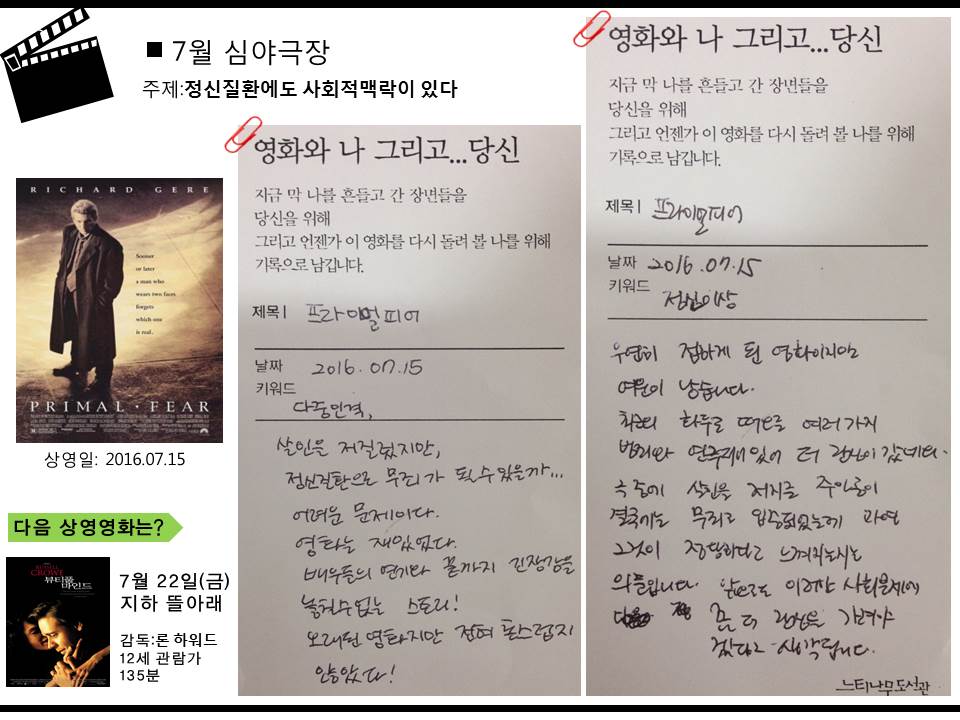 ■ 7월 심야극장
주제:정신질환에도 사회적맥락이 있다
RICHARD GERE
Sooner
or later
a man who
wears two faces
forgets
which one
is real.
PRIMAL FEAR
상영일: 2016.07.15
다음 상영영화는?
CROWE
뷰티풀
마인드
7월 22일(금)
지하 뜰아래
감독:론 하워드
12세 관람가
135분
영화와 나 그리고...당신
지금 막 나를 흔들고 간 장면들을
당신을 위해
그리고 언젠가 이 영화를 다시 돌려 볼 나를 위해
기록으로 남깁니다.
제목| 프라이멀피어
날짜 2016.07.15
키워드
다중인격,
살인은 저질렀지만,
정신질환으로 무죄가 될 수 있을까...
어려운 문제이다.
영화는 재밌었다.
배우들의 연기와 끝까지 긴장감을
놓칠수없는 스토리!
오래된 영화지만 전혀 촌스럽지
않았다!
영화와 나 그리고...당신
지금 막 나를 흔들고 간 장면들을
당신을 위해
그리고 언젠가 이 영화를 다시 돌려 볼 나를 위해
기록으로 남깁니다.
제목| 프라이멀피어
날짜 2016.07.15
키워드
정신이상
우연히 접하게 된 영화이지만
여운이 남습니다.
최근의 화두로 떠오를 여러가지
범죄와 연관돼있어 더 관심이 갔네요.
극 중에 살인을 저지른 주인공이
결국에는 무죄로 입증되었는데 과연
그것이 정당하다고 느껴지는지는
의문입니다. 앞으로도 이러한 사회문제에
좀 더 관심을 가져야
겠다고 생각됩니다.
느티나무도서관